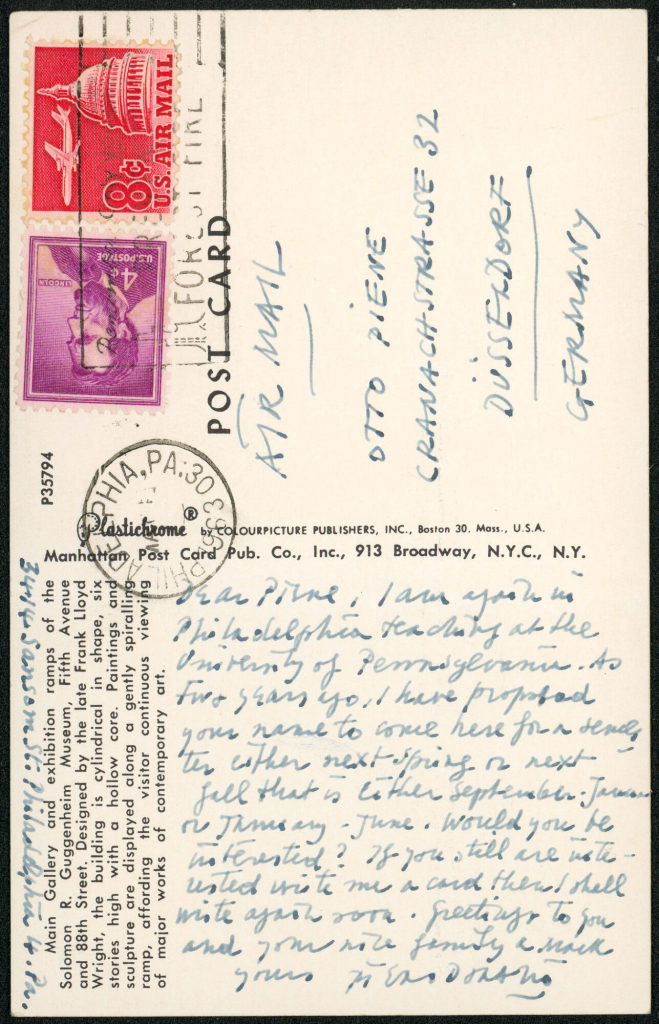 8¢
U.S. AIR MAIL
U.S. POSTAGE
4¢
LINCOLN
FOREST FIRE
POST CARD
AIR MAIL
OTTO PIENE
CRANACHSTRASSE 32
DÜSSELDORF
GERMANY
P35794
PHILADELPHIA, PA. 30
1963
Plastichrome ® by COLOURPICTURE PUBLISHERS, INC., Boston 30, Mass., U.S.A.
Manhattan Post Card Pub. Co., Inc., 913 Broadway, N.Y.C., N.Y.
Main Gallery and exhibition ramps of the
Solomon R. Guggenheim Museum, Fifth Avenue
and 88th Street. Designed by the late Frank Lloyd
Wright, the building is cylindrical in shape, six
stories high with a hollow core. Paintings and
sculpture are displayed along a gently spiralling
ramp, affording the visitor continuous viewing
of major works of contemporary art.
3414 Sansom St. Philadelphia 4. Pa.
Dear Piene, I am again in
Philadelphia teaching at the
University of Pennsylvania. As
two years ago, I have proposed
your name to come here for a semes
ter either next spring or next
fall that is either September-
or January - June. Would you be
interested? If you still are inte-
rested write me a card then I shall
write again soon. Greetings to you
and your nice family
yours PIERO DORAZIO